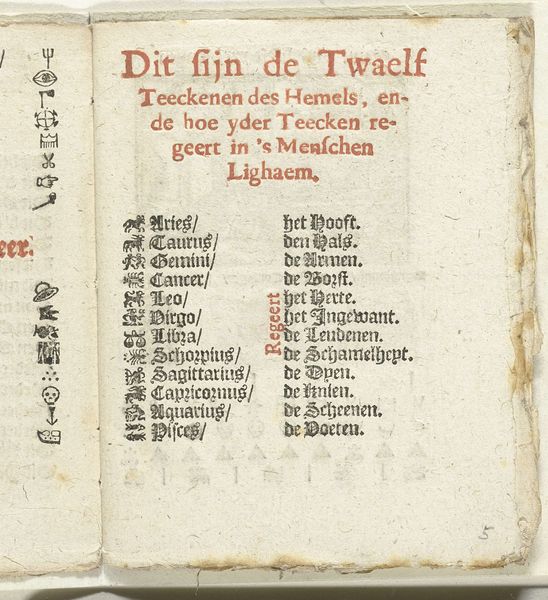 eer.
Dit ſijn de Twaelf
Teeckenen des Hemels, en-
de hoe yder Teecken re-
geert in 's Menſchen
Lighaem.
Aries/ het Hooft.
Taurus/ den Hals.
Gemini/ de Armen.
Cancer/ de Borſt.
Leo/ het Herte.
Virgo/ het Ingewant.
Libra/ de Leudenen.
Schorpius/ de Schamelheyt.
Sagittarius/ de Dyen.
Capricornus/ de Knien.
Aquarius/ de Scheenen.
Piſces/ de Voeten.
Regeert
5